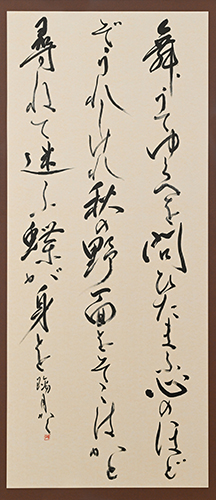 舞うてゆくへを問ひたまふ心のほど
ぞうれしけれ秋の野面をそこはかと
尋ねて迷ふ蝶が身を